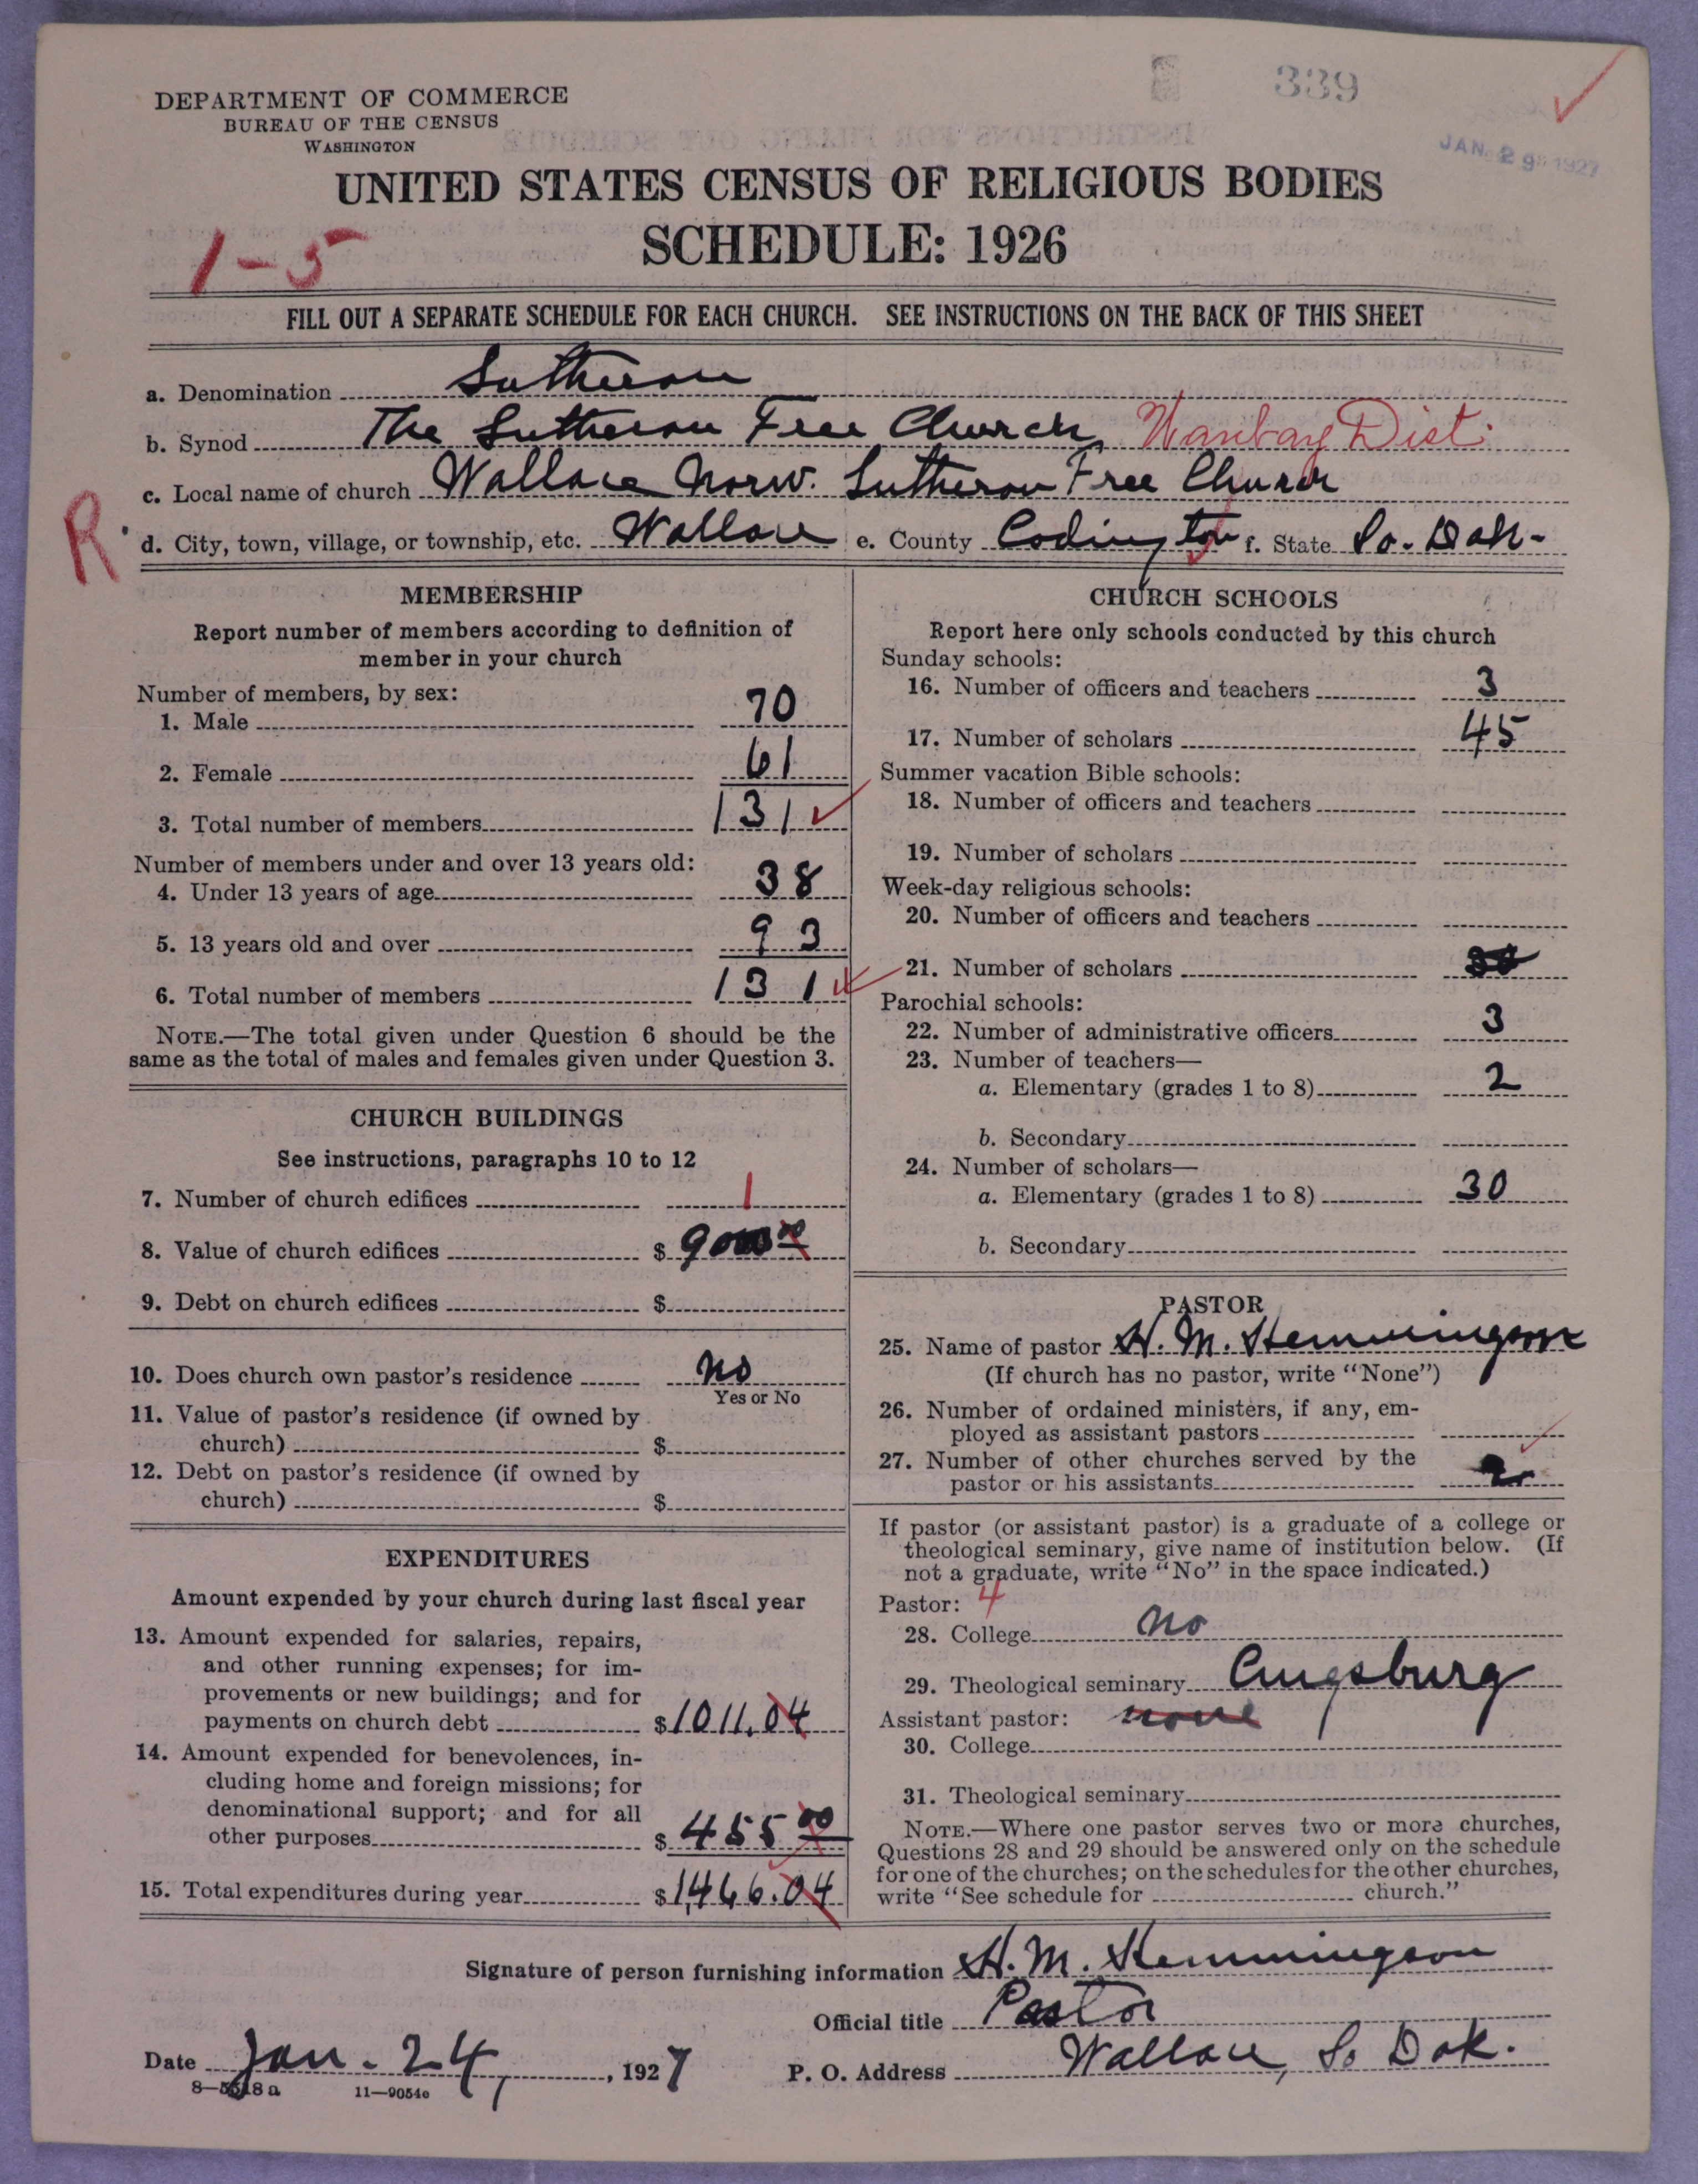 339
JAN 29 1927
DEPARTMENT OF COMMERCE
BUREAU OF THE CENSUS
WASHINGTON
UNITED STATES CENSUS OF RELIGIOUS BODIES
SCHEDULE: 1926
1-5
FILL OUT A SEPARATE SCHEDULE FOR EACH CHURCH. SEE INSTRUCTIONS ON THE BACK OF THIS SHEET
a. Denomination Lutheran
b. Synod The Lutheran Free Church, Waubay Dist.
c. Local name of church Wallace Norw. Lutheran Free Church
R
d. City, town, village, or township, etc. Wallace e. County Codington f. State So. Dak-
MEMBERSHIP
Report number of members according to definition of
member in your church
Number of members, by sex:
1. Male 70
2. Female 61
3. Total number of members 131
Number of members under and over 13 years old:
4. Under 13 years of age 38
5. 13 years old and over 93
6. Total number of members 131
NOTE.—The total given under Question 6 should be the
same as the total of males and females given under Question 3.
CHURCH BUILDINGS
See instructions, paragraphs 10 to 12
7. Number of church edifices 1
8. Value of church edifices $ 9000 00
9. Debt on church edifices $
10. Does church own pastor's residence No
Yes or No
11. Value of pastor's residence (if owned by
church) $
12. Debt on pastor's residence (if owned by
church) $
EXPENDITURES
Amount expended by your church during last fiscal year
13. Amount expended for salaries, repairs,
and other running expenses; for im-
provements or new buildings; and for
payments on church debt $1011.04
14. Amount expended for benevolences, in-
cluding home and foreign missions; for
denominational support; and for all
other purposes $ 455 00
15. Total expenditures during year $1,466.04
CHURCH SCHOOLS
Report here only schools conducted by this church
Sunday schools:
16. Number of officers and teachers 3
17. Number of scholars 45
Summer vacation Bible schools:
18. Number of officers and teachers
19. Number of scholars
Week-day religious schools:
20. Number of officers and teachers
21. Number of scholars 30
Parochial schools:
22. Number of administrative officers 3
23. Number of teachers—
a. Elementary (grades 1 to 8) 2
b. Secondary
24. Number of scholars—
a. Elementary (grades 1 to 8) 30
b. Secondary
PASTOR
25. Name of pastor H. M. Hemmingson
(If church has no pastor, write "None")
26. Number of ordained ministers, if any, em-
ployed as assistant pastors
27. Number of other churches served by the
pastor or his assistants 2
If pastor (or assistant pastor) is a graduate of a college or
theological seminary, give name of institution below. (If
not a graduate, write "No" in the space indicated.)
Pastor: 4
28. College No
29. Theological seminary Augsburg
Assistant pastor: none
30. College
31. Theological seminary
NOTE.—Where one pastor serves two or more churches,
Questions 28 and 29 should be answered only on the schedule
for one of the churches; on the schedules for the other churches,
write "See schedule for church."
Signature of person furnishing information H. M. Hemmingson
Official title Pastor
Date Jan. 24, 1927 P. O. Address Wallace, So Dak.
8—5518 a 11—9054e